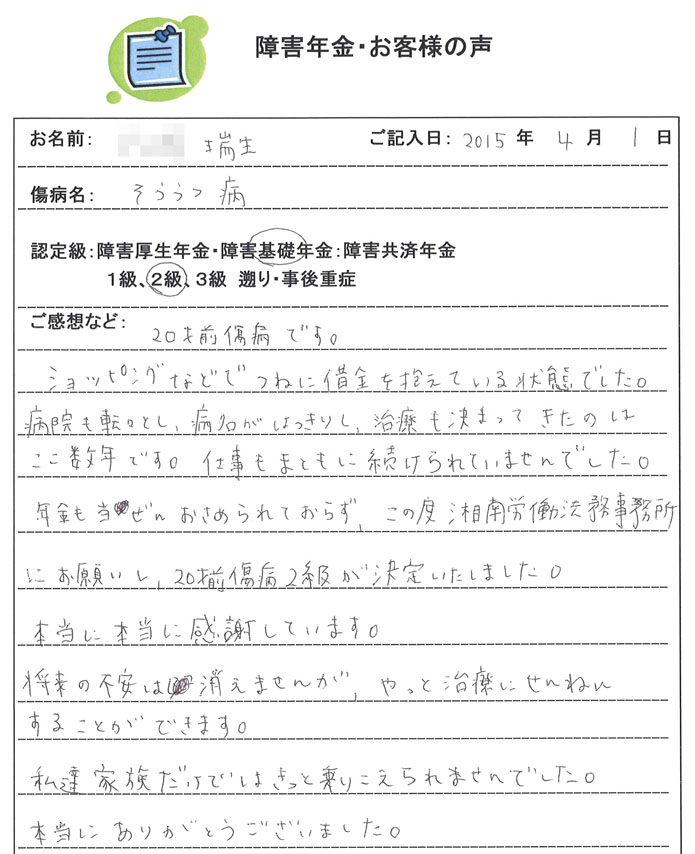 障害年金・お客様の声
お名前: 瑞生 ご記入日: 2015 年 4 月 1 日
傷病名: そううつ病
認定級:障害厚生年金・障害基礎年金:障害共済年金
1級、2級、3級 遡り・事後重症
ご感想など: 20才前傷病です。
ショッピングなどでつねに借金を抱えている状態でした。
病院も転々とし、病名がはっきりし、治療も決まってきたのは
ここ数年です。仕事もまともに続けられていませんでした。
年金も当ぜんおさめられておらず、この度湘南労働法務事務所
にお願いし、20才前傷病2級が決定いたしました。
本当に本当に感謝しています。
将来の不安は消えませんが、やっと治療にせんねん
することができます。
私達家族だけではきっと乗りこえられませんでした。
本当にありがとうございました。